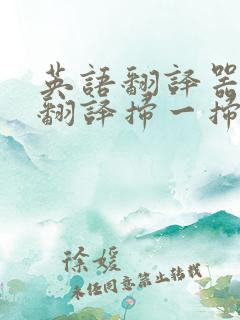 英語翻譯器
翻譯掃一掃
徐媛
未經同意禁止轉載